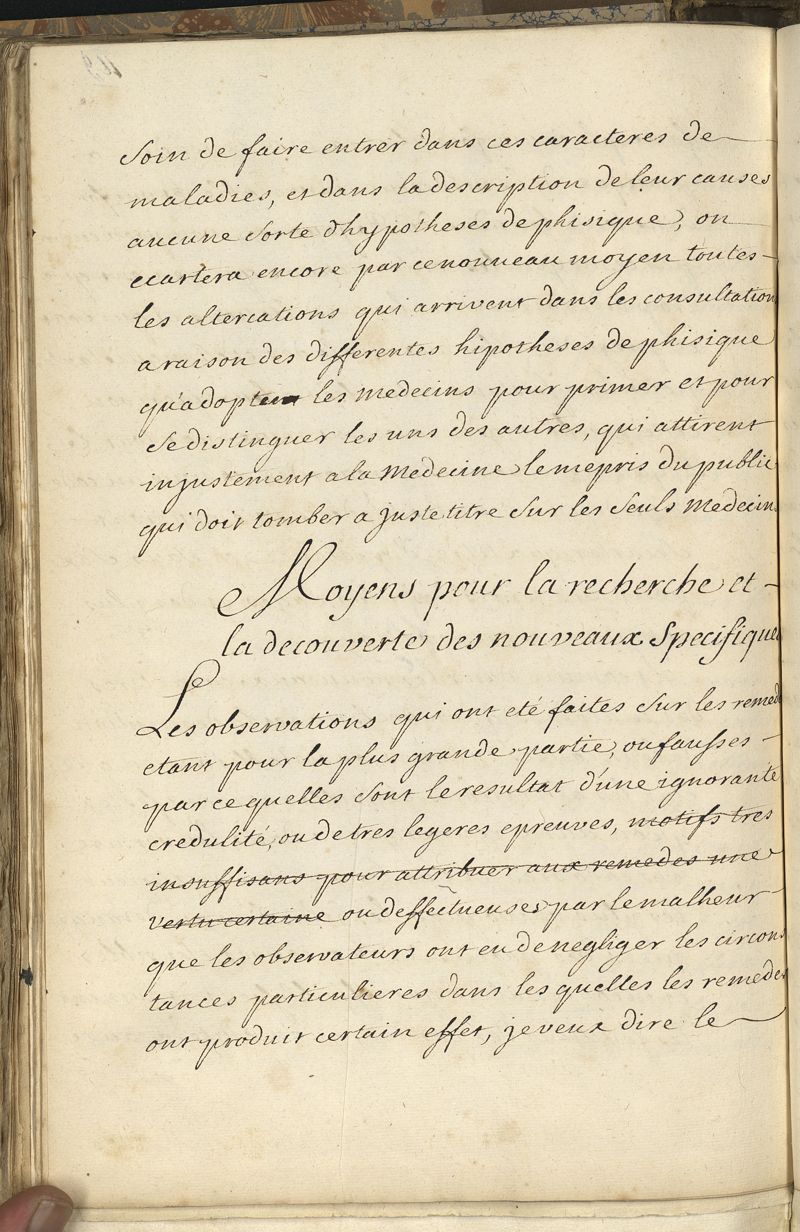 Soin de faire entrer dans ces caracteres de
maladies, et dans la description de leur causes
aucune sorte d'hypotheses de phisique, on
ecartera encore par ce nouveau moyen toutes
les altercations qui arrivent dans les consultation
a raison des differentes hipotheses de phisique
qu'adoptent les medecins pour primer et pour
se distinguer les uns des autres, qui attirent
injustement a la Medecine le mepris du public
qui doit tomber a juste titre sur les seuls medecin
Moyens pour la recherche et
la decouverte des nouveaux specifique
Les observations qui ont eté faites sur les remed
etant pour la plus grande partie, ou fausses
par ce quelles sont le resultat d'une ignorante
credulité, ou de tres legeres epreuves, motifs tres
insuffisans pour attribuer aux remedes une
vertu certaine ou deffectueuses par le malheur
que les observateurs ont eu de negliger les circons
tances particulieres dans les quelles les remedes
ont produit certain effet, je veux dire le